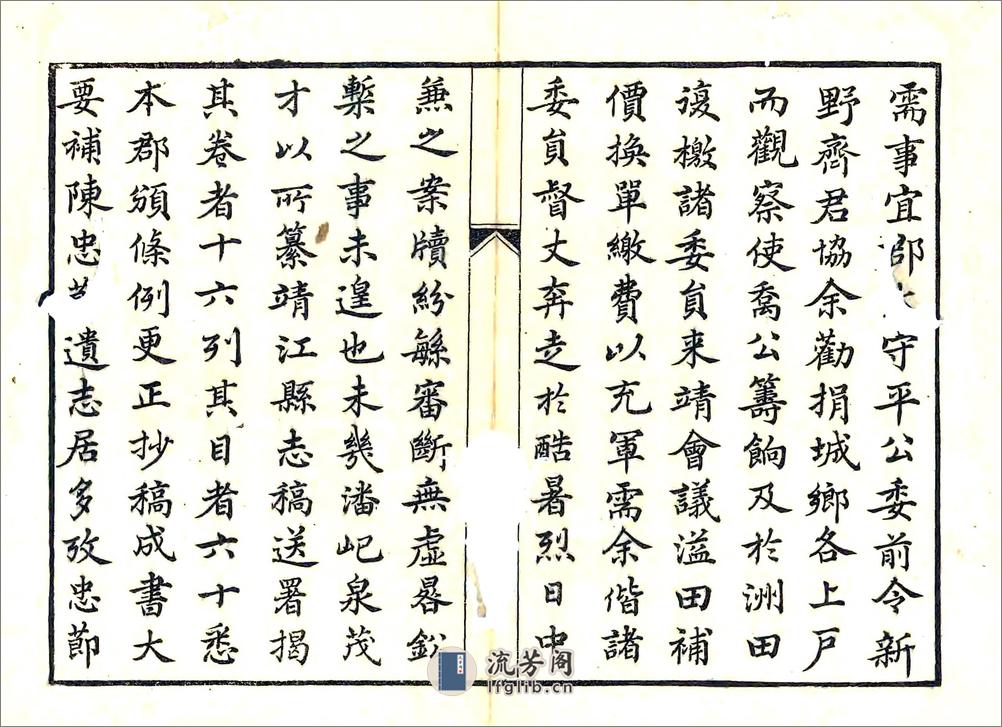 需事宜郡守平公委前令新
野齊君協余勸捐城鄉各上戸
而觀察使喬公籌餉及於洲田
復檄諸委貟来靖會議溢田補
價換單繳費以充軍需余偕諸
委貟督丈奔走於酷暑烈日中
兼之案牘紛緐審斷無虛晷鉛
槧之事未遑也未㡬潘屺泉茂
才以所纂靖江縣志稿送署揭
其卷者十六列其目者六十悉
本郡頒條例更正抄稿成書大
要補陳忠遺志居多攷忠節
流芳阁
lfglib.cn